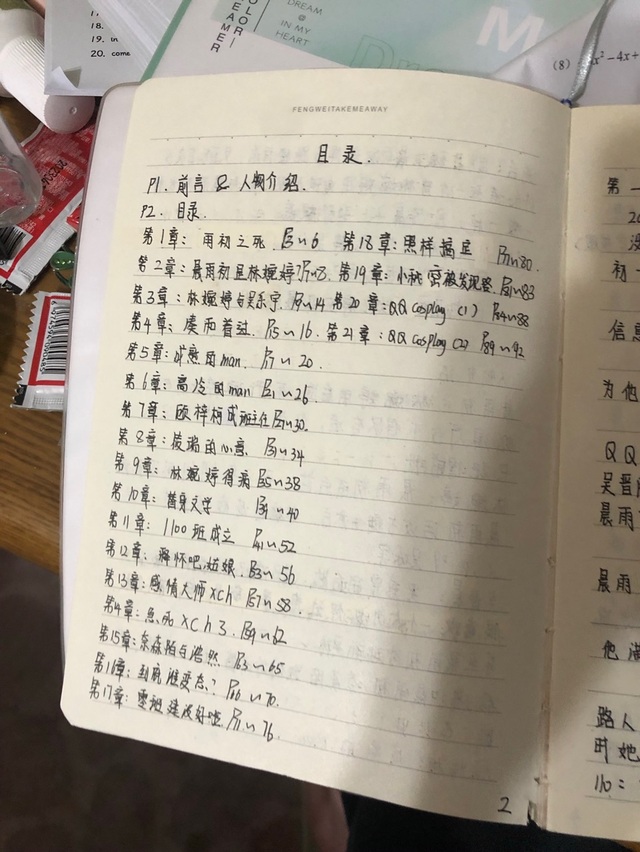 18.
19. in
20. come
DREAM
@
IN MY
HEART
COLOR
EAMER
Dr
M
(8)
x² - 4x +
FENGWEITAKEMEAWAY
目录.
P1. 前言 & 人物介绍.
P2. 目录.
第1章: 雨初之死. P3~6 第18章: 照样搞笙 P77~80.
第2章: 晨雨初是林婉婷? P7~8. 第19章: 小秘密被发现啦. P81~83
第3章: 林婉婷与吴乐宇. P9~14 第20章: QQ cosplay (1) P84~88
第4章: 凑而着迷. P15~16. 第21章: QQ cosplay (2) P89~92
第5章: 成熟的man. P17~20.
第6章: 高冷的man P21~26.
第7章: 欧梓柯成班主任 P27~30.
第8章: 俊瑞的心意 P31~34
第9章: 林婉婷得病 P35~38
第10章: 替身文学 P39~40
第11章: 1100班成立 P41~52
第12章: 释怀吧, 姑娘. P53~56
第13章: 感情大师xch P57~58.
第14章: 急死xch 3. P59~62
第15章: 东森陌与浩然. P63~65
第16章: 到底谁变态? P66~70.
第17章: 零班建设好啦. P71~76.
2
第一
20
初一
信息
为他
QQ
吴晋
晨雨
晨雨
他满
路人
时她
110: